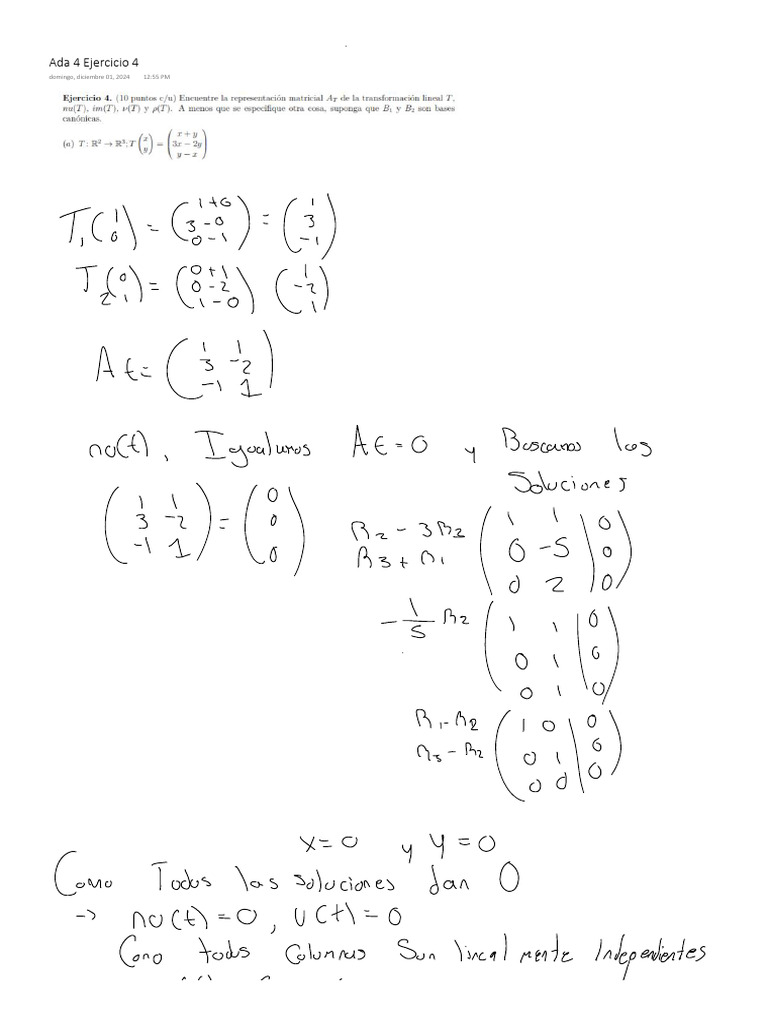 Ada 4 Ejercicio 4
domingo, diciembre 01, 2024 12:55 PM
Ejercicio 4. (10 puntos c/u) Encuentre la representación matricial A_T de la transformación lineal T,
nu(T), im(T), ν(T) y ρ(T). A menos que se especifique otra cosa, suponga que B₁ y B₂ son bases
canónicas.
(a) T: ℝ² → ℝ³; T (x y) = (x + y 3x − 2y y − x)
T₁ (1 0) = (1+0 3-0 0-1) = (1 3 -1)
T₂ (0 1) = (0+1 0-2 1-0) (1 -2 1)
At = (1 1 3 -2 -1 1)
nu(t), Igualamos At = 0 y Buscamos las
Soluciones
(1 1 3 -2 -1 1) = (0 0 0)
R2 - 3R2
R3 + R1
(1 1 | 0 0 -5 | 0 0 2 | 0)
-1/5 R2 (1 1 | 0 0 1 | 0 0 1 | 0)
R1 - R2
R3 - R2
(1 0 | 0 0 1 | 0 0 0 | 0)
x=0 y y=0
Como Todas las soluciones dan 0
-> nu(t)=0, U(t)=0
Como todas Columnas Sun linealmente Independientes